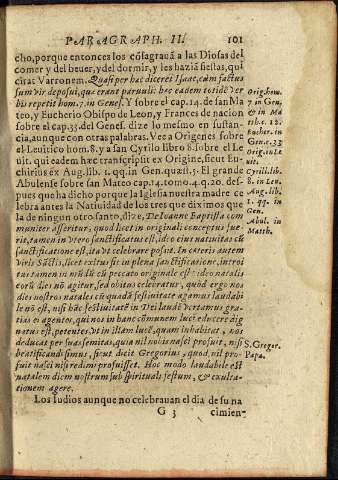 PARAGRAPH. II. 101
cho, porque entonces los cōsagrauā a las Diosas del
comer y del beuer, y del dormir, y les haziā fiestas, qui
citat Varronem. Quasi per hæc diceret Isaac, cùm factus
sum vir deposui, quæ erant paruuli: hæc eadem totidē ver
bis repetit hom. 7. in Genes. Y sobre el cap. 14. de san Ma
teo, y Eucherio Obispo de Leon, y Frances de nacion
sobre el cap. 33. del Genes. dize lo mesmo en sustan-
cia, aunque con otras palabras. Vee a Origenes sobre
el Leuitico hom. 8. y a san Cyrilo libro 8. sobre el Le
uit. qui eadem hæc transcripsit ex Origine, sicut Eu-
chirius ex Aug. lib. 1. qq. in Gen. quæst. 51. El grande
Abulense sobre san Mateo cap. 14. tomo 4. q. 20. des-
pues que ha dicho porque la Iglesia nuestra madre ce
lebra antes la Natiuidad de los tres que diximos que
la de ningun otro santo, dize, De Ioanne Baptista com
muniter asseritur, quod licet in originali conceptus fue
rit, tamen in vtero sanctificatus est, ideo eius natuitas cū
sanctificatione est, ita vt celebrare possit. In cæteris autem
viris Sāctis, licet exitus sit in plena sanctificatione, introi
tus tamen in mūdū cū peccato originale est: ideo natalis
eorū dies nō agitur, sed obitus celebratur, quòd ergo nos
dies nostros natales cū quadā festiuitate agamus laudabi
le nō est, nisi hāc festiuitatē in Dei laudē vertamus gra-
tias ei agentes, qui nos in hanc cōmunem lucē educere dig
natus est, petentes vt in illam lucē, quam inhabitat, nos
deducat per suas semitas, quia nil nobis nasci profuit, nisi
beatificandi simus, sicut dicit Gregorius, quod, nil pro-
fuit nasci nisi redimi profuisset. Hoc modo laudabile est
natalem diem nostrum sub spirituali festum, & exulta-
tionem agere.
Los Iudios aunque no celebrauan el dia de su na
G 3 cimien-
Orig. hom.
7. in Gen.
& in Ma
th. c. 12.
Eucher. in
Gen. c. 33
Orig. in Le
uit.
Cyrill. lib.
8. in Leu.
Aug. lib.
1. qq. in
Gen.
Abul. in
Matth.
S. Gregor.
Papa.